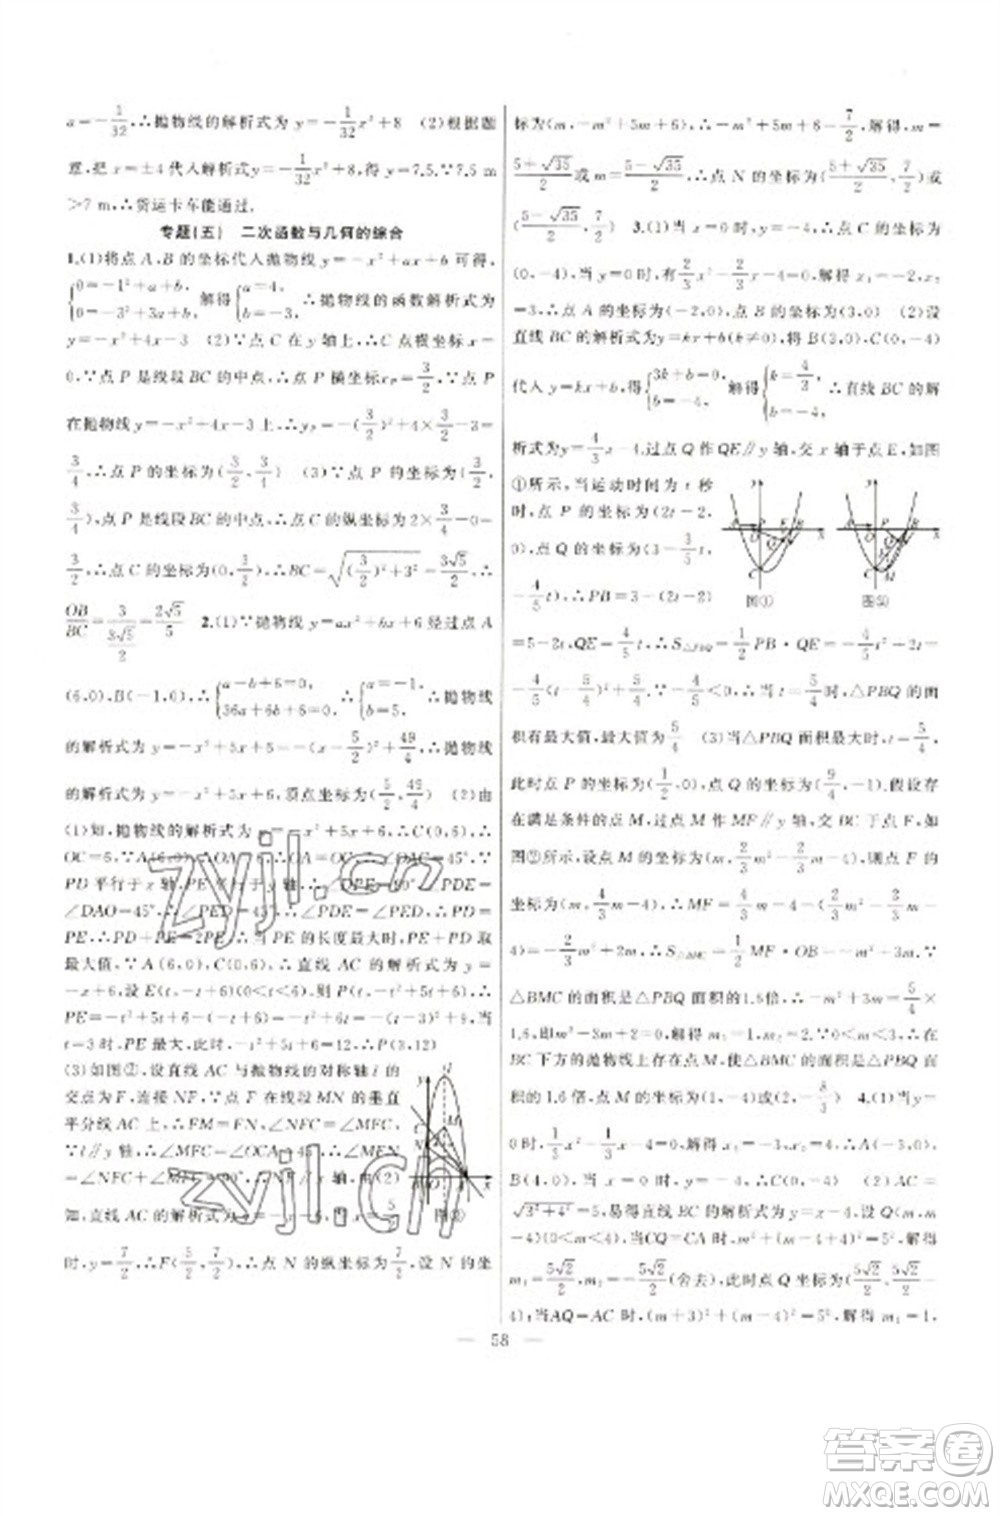 a=-1/32,∴抛物线的解析式为 y=-1/32x²+8 (2)根据题
意,把 x=±4 代入解析式 y=-1/32x²+8,得 y=7.5,∵7.5 m
>7 m,∴货运卡车能通过.
专题(五) 二次函数与几何的综合
1.(1)将点 A,B 的坐标代入抛物线 y=-x²+ax+b 可得,
{0=-1²+a+b, 0=-3²+3a+b, 解得{a=4, b=-3, ∴抛物线的函数解析式为
y=-x²+4x-3 (2)∵点 C 在 y 轴上,∴点 C 横坐标 x=
0,∵点 P 是线段 BC 的中点,∴点 P 横坐标 xP=3/2,∵点 P
在抛物线 y=-x²+4x-3 上,∴yP=-(3/2)²+4×3/2-3=
3/4,∴点 P 的坐标为(3/2,3/4) (3)∵点 P 的坐标为(3/2,
3/4),点 P 是线段 BC 的中点,∴点 C 的纵坐标为 2×3/4-0=
3/2,∴点 C 的坐标为(0,3/2),∴BC=√((3/2)²+3²)=3√5/2,∴
OB/BC=3/(3√5/2)=2√5/5 2.(1)∵抛物线 y=ax²+bx+6 经过点 A
(6,0),B(-1,0),∴{a-b+6=0, 36a+6b+6=0, ∴{a=-1, b=5, ∴抛物线
的解析式为 y=-x²+5x+6=-(x-5/2)²+49/4,∴抛物线
的解析式为 y=-x²+5x+6,顶点坐标为(5/2,49/4) (2)由
(1)知,抛物线的解析式为 y=-x²+5x+6,∴C(0,6),∴
OC=6,∵A(6,0),∴OA=6,∴∠OAC=45°,∵
PD 平行于 x 轴,PE 平行于 y 轴,∴∠DPE=90°,∠PDE=
∠DAO=45°,∴∠PED=45°,∴∠PDE=∠PED,∴PD=
PE,∴PD+PE=2PE,∴当 PE 的长度最大时,PE+PD 取
最大值,∵A(6,0),C(0,6),∴直线 AC 的解析式为 y=
-x+6,设 E(t,-t+6)(0<t<6),则 P(t,-t²+5t+6),∴
PE=-t²+5t+6-(-t+6)=-t²+6t=-(t-3)²+9,当
t=3 时,PE 最大,此时,-t²+5t+6=12,∴P(3,12)
(3)如图②,设直线 AC 与抛物线的对称轴 l 的
交点为 F,连接 NF,∵点 F 在线段 MN 的垂直
平分线 AC 上,∴FM=FN,∠NFC=∠MFC,
∵l∥y 轴,∴∠MFC=∠OCA=45°,∴∠MFN
=∠NFC+∠MFC=90°,∴NF∥x 轴,由(2)
知,直线 AC 的解析式为 y=-x+6,当 x=5/2 图②
时,y=7/2,∴F(5/2,7/2),∴点 N 的纵坐标为7/2,设 N 的坐
标为(m,-m²+5m+6),∴-m²+5m+6=7/2,解得,m=
(5+√35)/2或 m=(5-√35)/2,∴点 N 的坐标为((5+√35)/2,7/2)或
((5-√35)/2,7/2) 3.(1)当 x=0 时,y=-4,∴点 C 的坐标为
(0,-4),当 y=0 时,有2/3x²-2/3x-4=0,解得 x₁=-2,x₂=
3,∴点 A 的坐标为(-2,0),点 B 的坐标为(3,0) (2)设
直线 BC 的解析式为 y=kx+b(k≠0),将 B(3,0),C(0,-4)
代入 y=kx+b,得{3k+b=0, b=-4, 解得{k=4/3, b=-4, ∴直线 BC 的解
析式为 y=4/3x-4,过点 Q 作 QE∥y 轴,交 x 轴于点 E,如图
①所示,当运动时间为 t 秒
时,点 P 的坐标为(2t-2,
0),点 Q 的坐标为(3-3/5t,-
4/5t),∴PB=3-(2t-2) 图① 图②
=5-2t,QE=4/5t,∴S△PBQ=1/2PB·QE=-4/5t²+2t=
-4/5(t-5/4)²+5/4,∵-4/5<0,∴当 t=5/4时,△PBQ 的面
积有最大值,最大值为5/4 (3)当△PBQ 面积最大时,t=5/4,
此时点 P 的坐标为(1/2,0),点 Q 的坐标为(9/4,-1),假设存
在满足条件的点 M,过点 M 作 MF∥y 轴,交 BC 于点 F,如
图②所示,设点 M 的坐标为(m,2/3m²-2/3m-4),则点 F 的
坐标为(m,4/3m-4),∴MF=4/3m-4-(2/3m²-2/3m-
4)=-2/3m²+2m,∴S△BMC=1/2MF·OB=-m²+3m,∵
△BMC 的面积是△PBQ 面积的1.6倍,∴-m²+3m=5/4×
1.6,即 m²-3m+2=0,解得 m₁=1,m₂=2,∵0<m<3,∴在
BC 下方的抛物线上存在点 M,使△BMC 面积是△PBQ 面
积的 1.6 倍,点 M 的坐标为(1,-4)或(2,-8/3) 4.(1)当 y=
0时,1/3x²-1/3x-4=0,解得 x₁=-3,x₂=4,∴A(-3,0),
B(4,0),当 x=0,y=-4,∴C(0,-4) (2)AC=
√(3²+4²)=5,易得直线 BC 的解析式为 y=x-4,设 Q(m,m
-4)(0<m<4),当CQ=CA时,m²+(m-4+4)²=5²,解得
m₁=5√2/2,m₂=-5√2/2(舍去),此时点 Q 坐标为(5√2/2,5√2/2-
4);当 AQ=AC 时,(m+3)²+(m-4)²=5²,解得 m₁=1,
— 58 —
zyjl.cn
zyjl.cn
答案圈
MXQE.COM